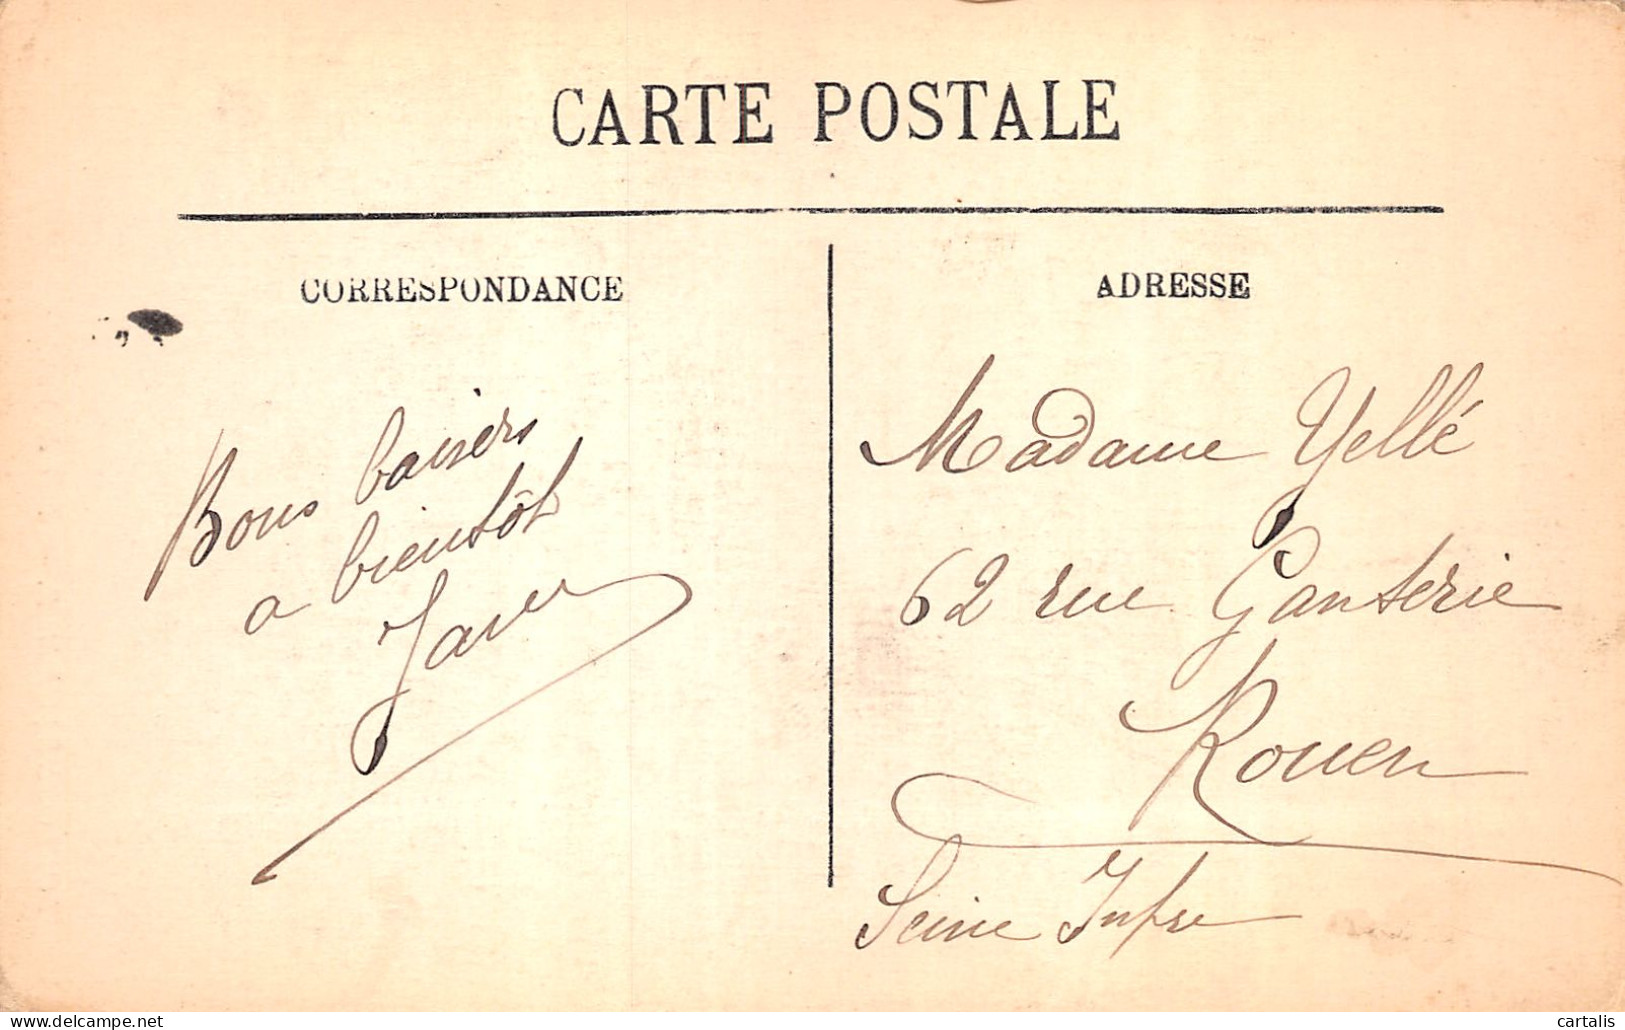 CARTE POSTALE
CORRESPONDANCE
Bons baisers
a bientôt
ADRESSE
Madame Yellé
62 rue Ganterie
Rouen
Seine Infre
www.delcampe.net
cartalis